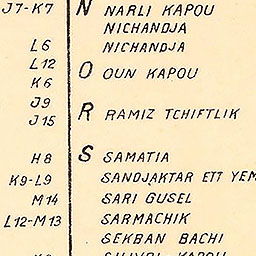 J7-K7 N NARLI KAPOU
NICHANDJA
L6 NICHANDJA
L12 O OUN KAPOU
K6
J9 R RAMIZ TCHIFTLIK
J15
H8 S SAMATIA
K9-L9 SANDJAKTAR ETT YEM
M14 SARI GUSEL
L12-M13 SARMACHIK
SEKBAN BACHI